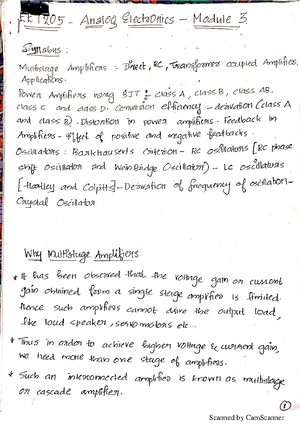 EET205 - Analog Electronics - Module 3
Syllabus :
Multistage Amplifiers - Direct, RC, Transformer coupled Amplifiers,
Applications.
Power Amplifiers using BJT : Class A, class B, class AB,
class C and class D. Conversion efficiency - derivation (class A
and class B). Distortion in power amplifiers. Feedback in
Amplifiers - Effect of positive and negative feedbacks.
Oscillators : Barkhausen's criterion - RC oscillators [RC phase
shift oscillator and Wein Bridge Oscillator] - LC oscillators
[Hartley and Colpitts] - Derivation of frequency of oscillation -
Crystal Oscillator
Why Multistage Amplifiers.
* It has been observed that the voltage gain or current
gain obtained from a single stage amplifier is limited.
Hence such amplifiers cannot drive the output load,
like loud speaker, servomotors etc...
* Thus in order to achieve higher voltage & current gain,
we need more than one stage of amplifiers.
* Such an interconnected amplifier is known as multistage
or cascade amplifier.
1
Scanned by CamScanner